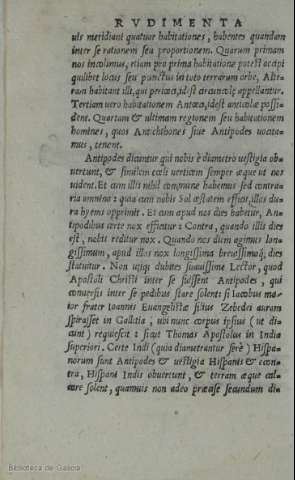 RVDIMENTA
uis meridiani quatuor habitationes, habentes quandam
inter se rationem seu proportionem. Quarum primam
nos incolimus, etiam pro prima habitatione potest accipi
quilibet locus seu punctus in toto terrarum orbe, Alte-
ram habitant illi, qui periœci, idest circūcolę appellantur.
Tertiam uero habitationem Antœci, idest anticolæ possi-
dent. Quartam & ultimam regionem seu habitationem
homines, quos Antichthones siue Antipodes uoca-
mus, tenent.
Antipodes dicuntur qui nobis è diametro uestigia ob-
uertunt, & similem cœli uerticem semper atque ut nos
uident. Et cum illis nihil commune habemus sed contra-
ria omnino: quia cum nobis Sol æstatem efficit, illos du-
ra hyems opprimit. Et cum apud nos dies habetur, An-
tipodibus certe nox efficitur: Contra, quando illis dies
est, nobis reditur nox. Quando nos diem agimus lon-
gissimum, apud illos nox longissima breuissimaq́; dies
statuitur. Non usqi dubites suauissime Lector, quod
Apostoli Christi inter se fuissent Antipodes, qui
conuersis inter se pedibus stare solent: si Iacobus ma-
ior frater Ioannis Euangelistæ filius Zebedei auram
spirasset in Gallitia, ubi nunc corpus ipsius (ut di-
cunt) requiescit: sicut Thomas Apostolus in India
superiori. Certe Indi (quia diametrantur ferè) Hispa-
norum sunt Antipodes & uestigia Hispanis & econ-
tra, Hispani Indis obuertunt, & terram æque cal-
care solent, quamuis non adeo præcise secundum di-
Biblioteca de Galicia